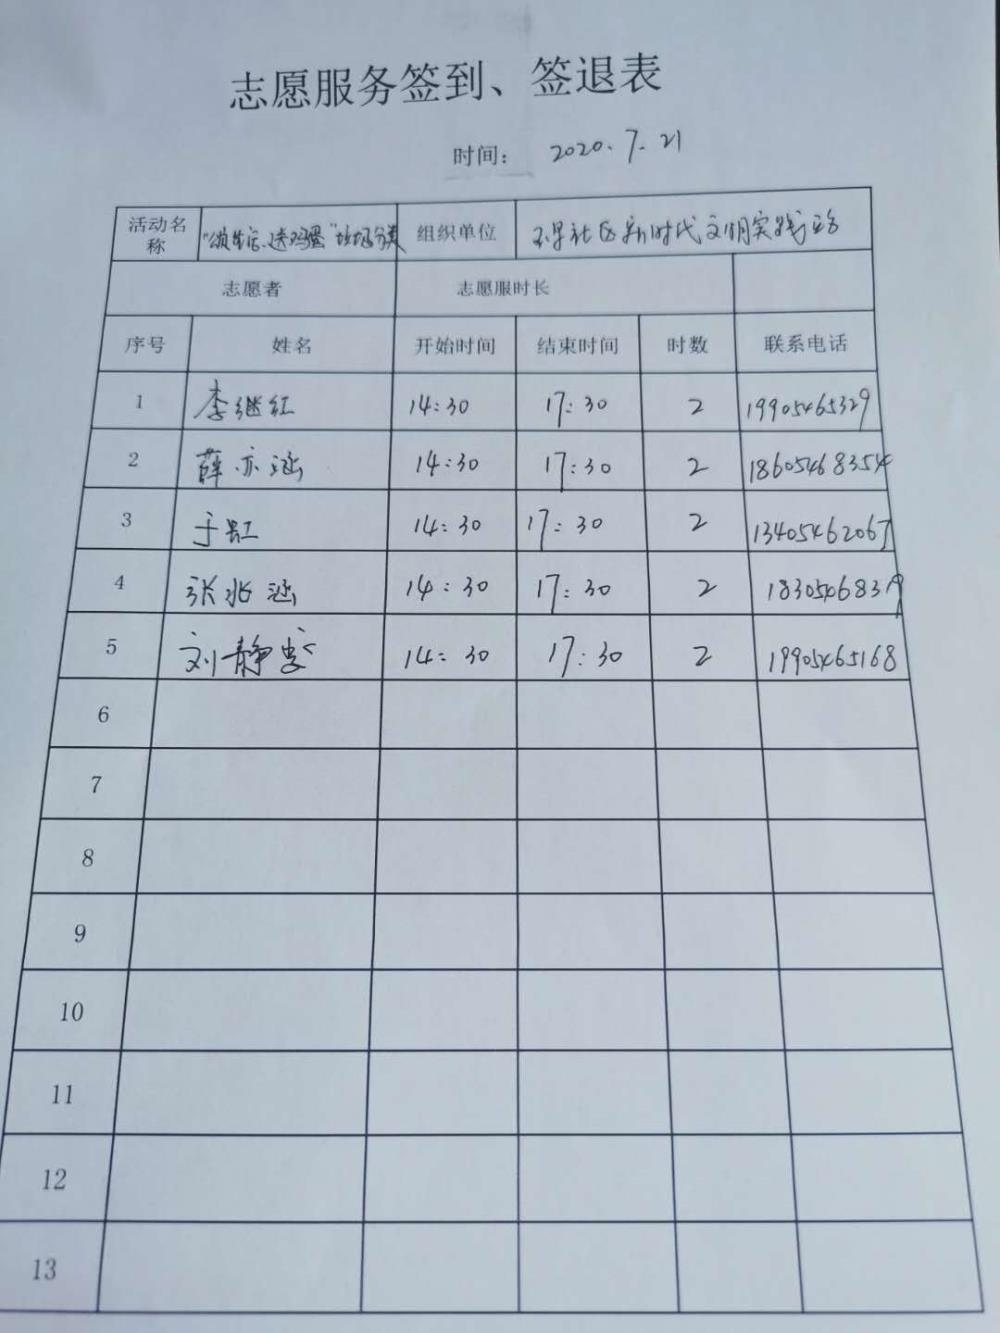 志愿服务签到、签退表
时间： 2020.7.21
活动名称 垃圾分类 组织单位 社区新时代文明实践站
志愿者 志愿服时长
序号 姓名 开始时间 结束时间 时数 联系电话
1 李继红 14:30 17:30 2 19905465329
2 薛亦涵 14:30 17:30 2 18605468354
3 于虹 14:30 17:30 2 13405462067
4 张兆涵 14:30 17:30 2
5 刘静 14:30 17:30 2 19905465168
6
7
8
9
10
11
12
13